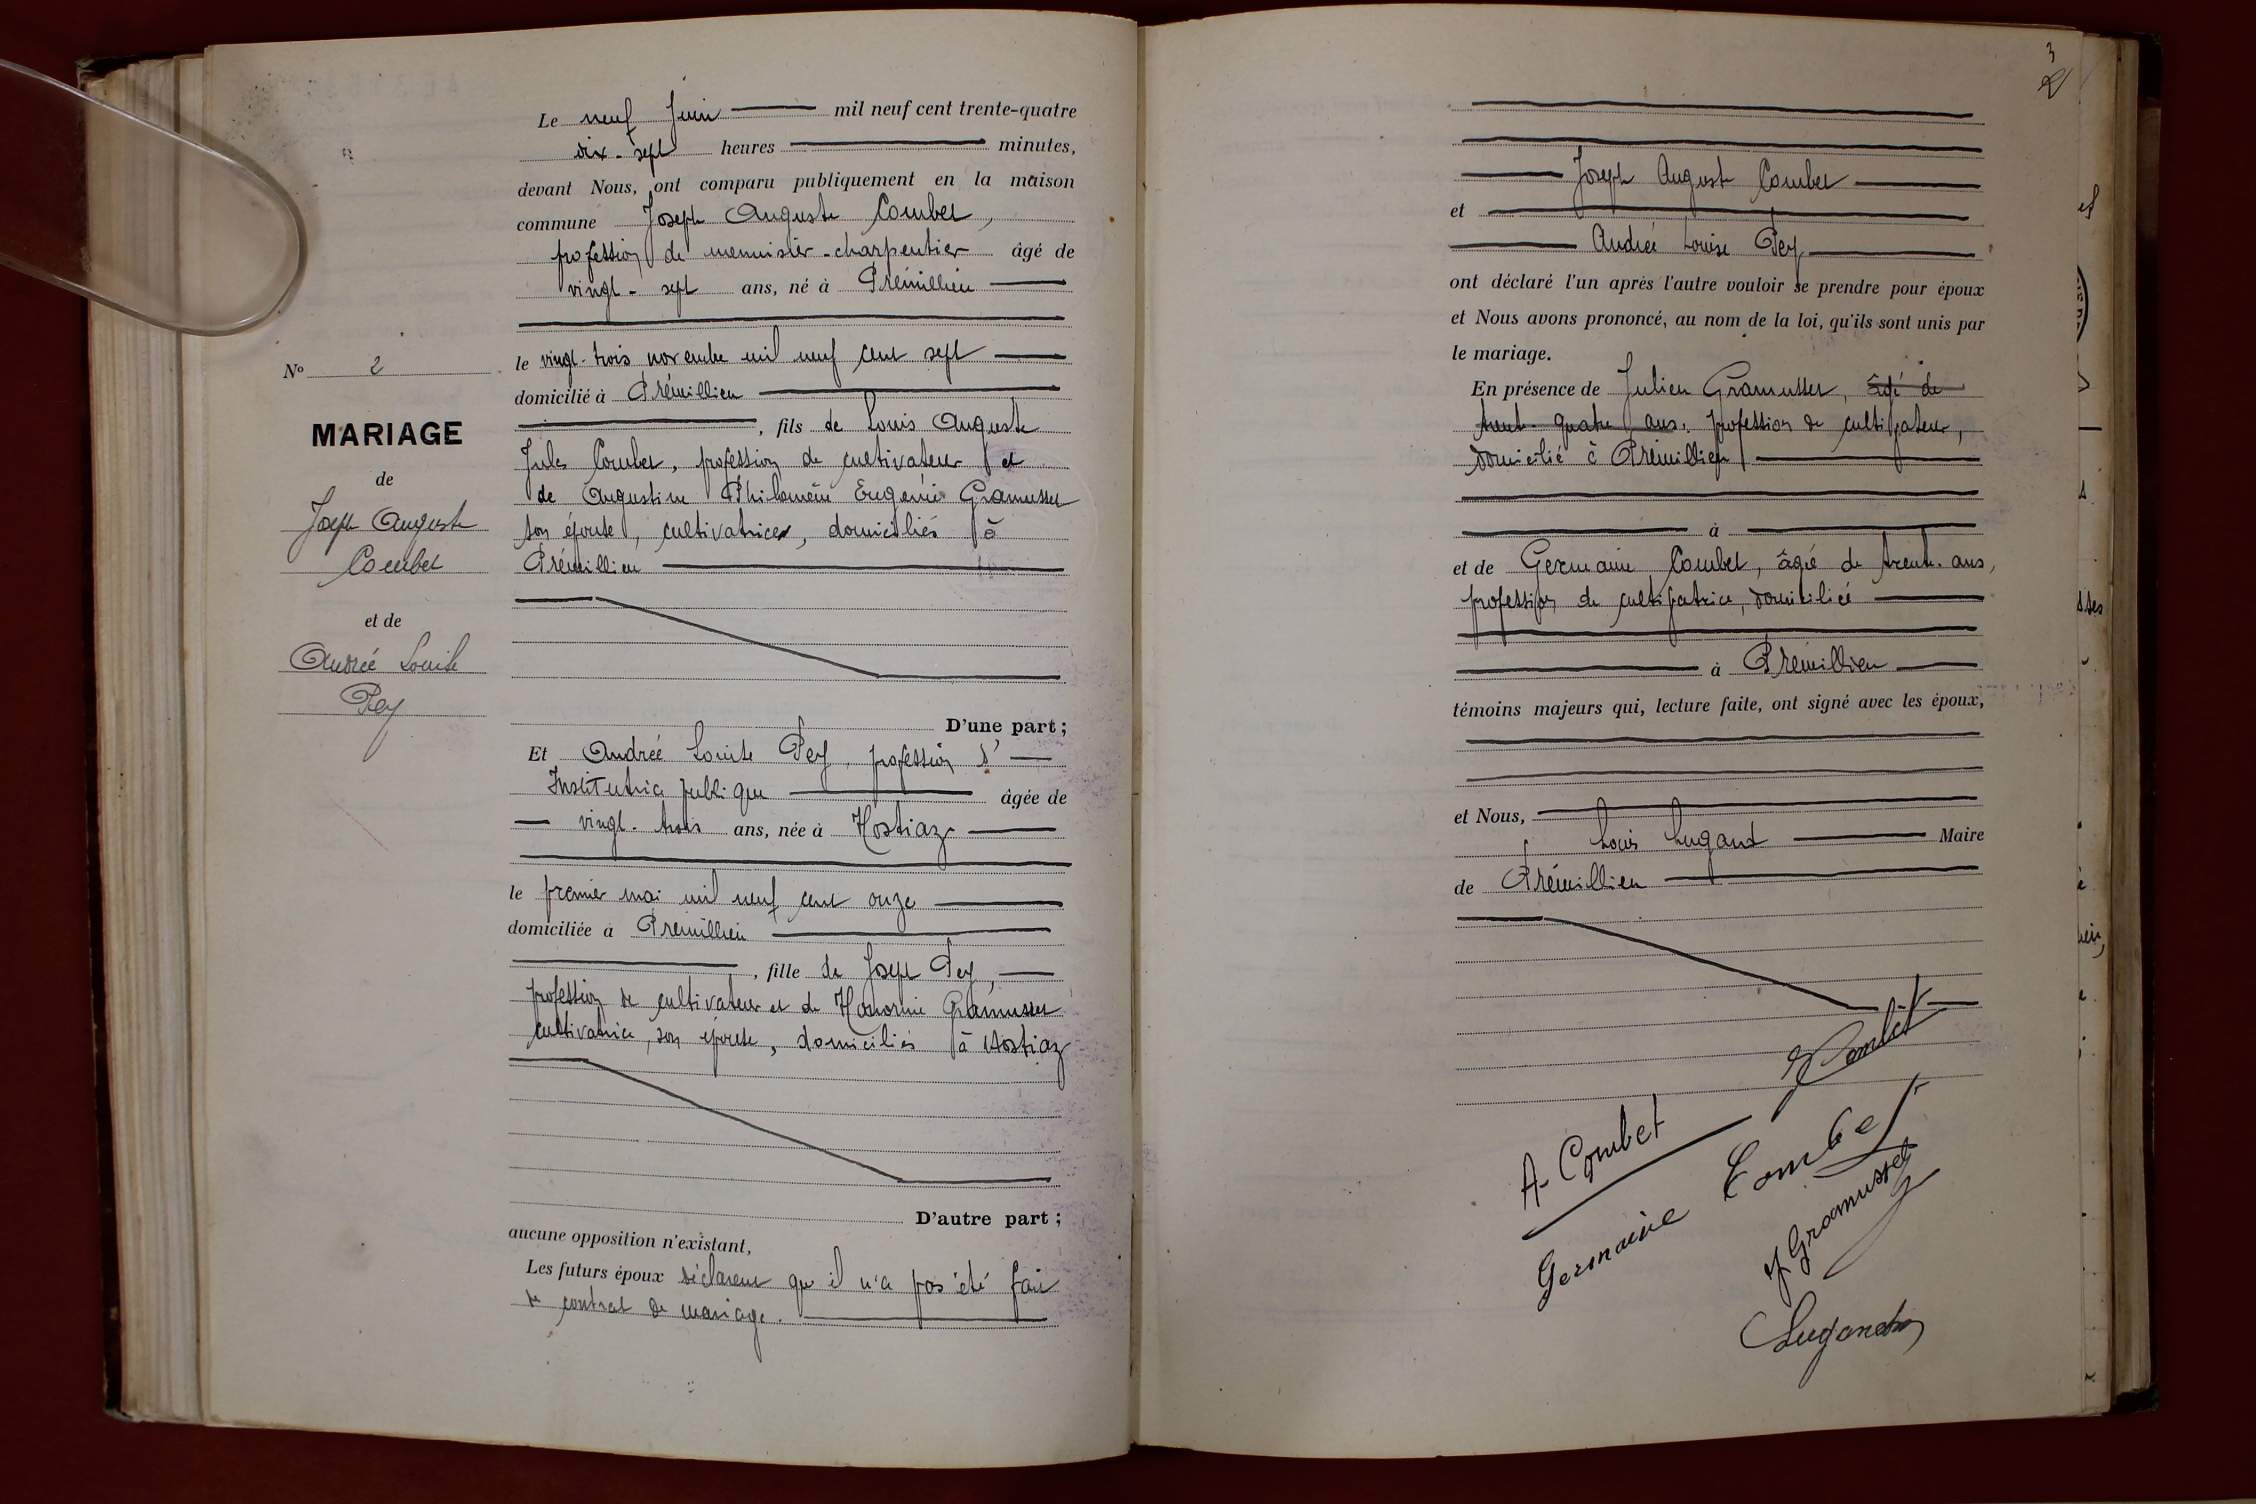 Le neuf Juin mil neuf cent trente-quatre
dix-sept heures minutes,
devant Nous, ont comparu publiquement en la maison
commune Joseph Auguste Combet,
profession de menuisier-charpentier âgé de
vingt-sept ans, né à Prémillieu
le vingt-trois novembre mil neuf cent sept
domicilié à Prémillieu
, fils de Louis Auguste
Jules Combet, profession de cultivateur et
de Augustine Philomène Eugénie Gramusset
son épouse, cultivatrice, domiciliés à
Prémillieu
D'une part ;
Et Andrée Louise Pey, profession d'
Institutrice publique âgée de
vingt-trois ans, née à Hostiaz
le premier mai mil neuf cent onze
domiciliée à Prémillieu
, fille de Joseph Pey,
profession de cultivateur et de Honorine Gramusset
cultivatrice, son épouse, domiciliés à Hostiaz
D'autre part ;
aucune opposition n'existant,
Les futurs époux déclarent qu'il n'a pas été fait
de contrat de mariage.
No 2
MARIAGE
de
Joseph Auguste
Combet
et de
Andrée Louise
Pey
3
Joseph Auguste Combet
et
Andrée Louise Pey
ont déclaré l'un après l'autre vouloir se prendre pour époux
et Nous avons prononcé, au nom de la loi, qu'ils sont unis par
le mariage.
En présence de Julien Gramusset, âgé de
trente-quatre ans, profession de cultivateur,
domicilié à Prémillieu
à
et de Germaine Combet, âgée de trente ans,
profession de cultivatrice, domiciliée
à Prémillieu
témoins majeurs qui, lecture faite, ont signé avec les époux,
et Nous,
Louis Lugand Maire
de Prémillieu
A. Combet
Germaine Combet
J Gramusset
Lugand